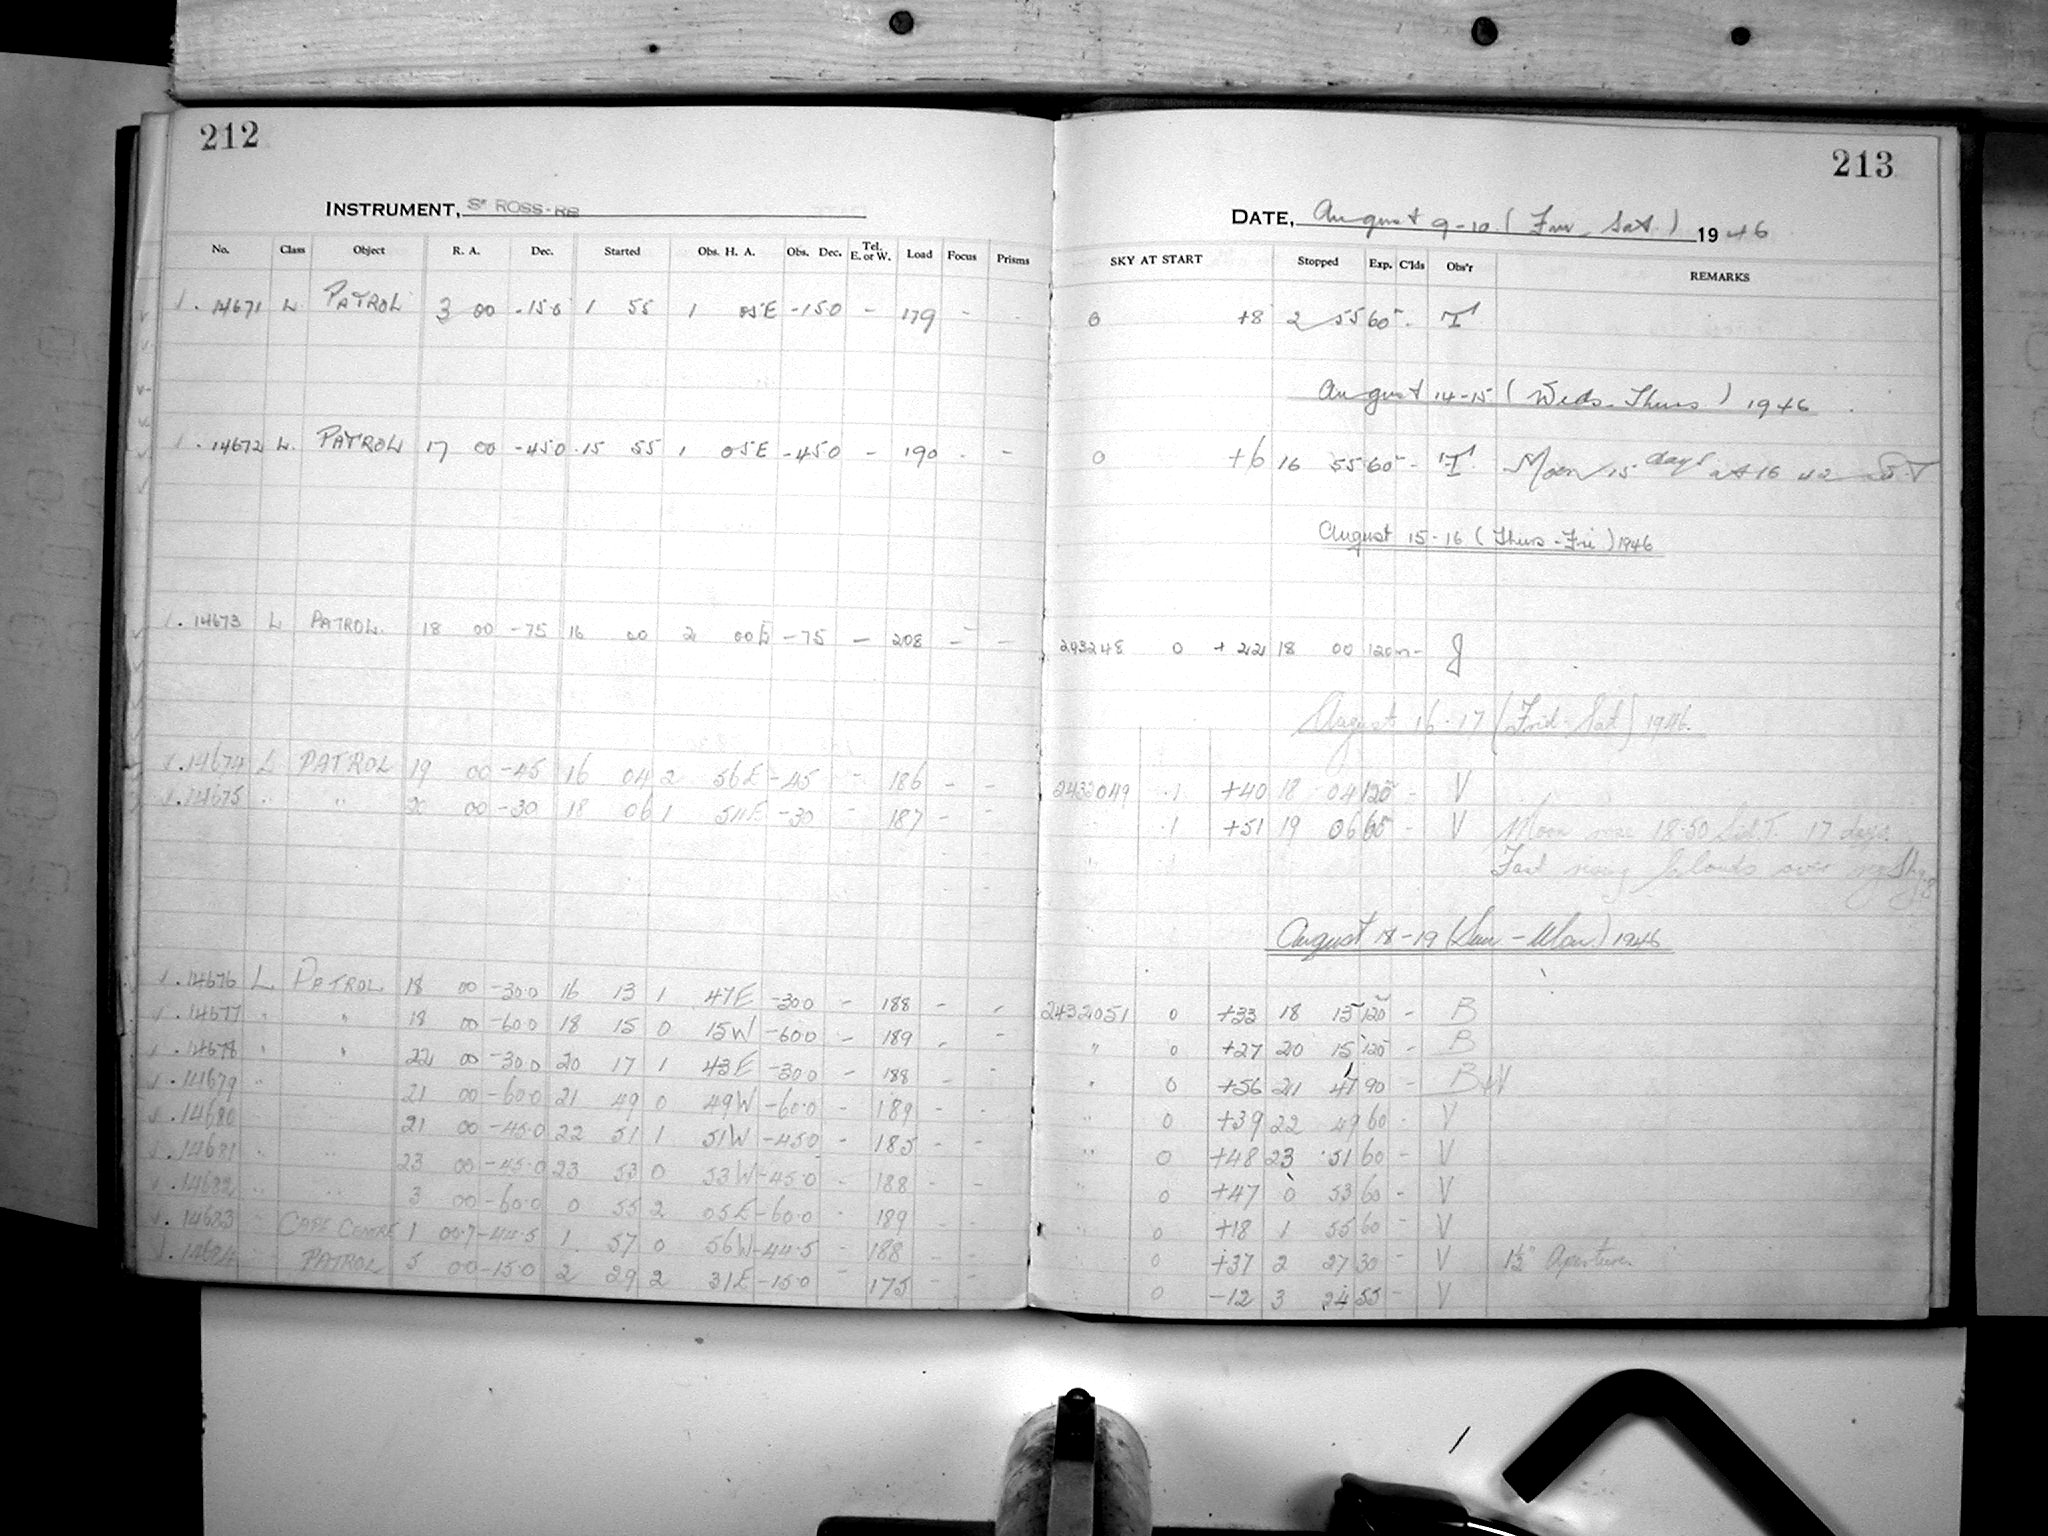 212
INSTRUMENT, ROSS-
No. Class Object R. A. Dec. Started Obs. H. A. Obs. Dec. Tel. E. or W. Load Focus Prisms
14671 L PATROL 3 00 -150 1 55 1 05E -150 - 179 -
14672 L. PATROL 17 00 -450 15 55 1 05E -450 - 190 - -
14673 L PATROL. 18 00 -75 16 00 2 00E -75 - 208 - -
14674 L PATROL 19 00 -45 16 04 2 56E -45 - 186 - -
14675 " " 20 00 -30 18 06 1 54E -30 - 187 - -
14676 L PATROL 18 00 -30.0 16 13 1 47E -300 - 188 - -
14677 " " 18 00 -600 18 15 0 15W -600 - 189 - -
14678 " " 22 00 -30.0 20 17 1 43E -300 - 188 - -
14679 " 21 00 -60.0 21 49 0 49W -60.0 - 189 - -
14680 21 00 -45.0 22 51 1 51W -450 - 185 - -
14681 " " 23 00 -45.0 23 53 0 53W -45.0 - 188 - -
14682 " " 3 00 -60.0 0 55 2 05E -60.0 - 189 - -
14683 " CAPE 1 00.7 -44.5 1 57 0 56W -44.5 - 188 - -
14684 " PATROL 5 00 -15.0 2 29 2 31E -15.0 - 175 - -
213
DATE, August 9-10 ( Sat. ) 1946
SKY AT START Stopped Exp. C'lds Obs'r REMARKS
0 +8 2 55 60 - T
August 14-15 (Weds-Thurs) 1946
0 +6 16 55 60 - T Moon 15 days at 16 42
August 15-16 (Thurs-Fri) 1946
243248 0 +22 18 00 120m - J
August 16-17 (Frid-Sat) 1946.
2432049 1 +40 18 04 120 - V
1 +51 19 06 60 - V Moon rose 18.50 Sid.T. 17 days.
Fast rising clouds over
August 18-19 (Sun-Mon) 1946
2432051 0 +33 18 13 120 - B
" 0 +27 20 15 120 - B
" 0 +56 21 47 90 - B+V
" 0 +39 22 49 60 - V
" 0 +48 23 51 60 - V
" 0 +47 0 53 60 - V
" 0 +18 1 55 60 - V
0 +37 2 27 30 - V 1½" Aperture
0 -12 3 24 55 - V